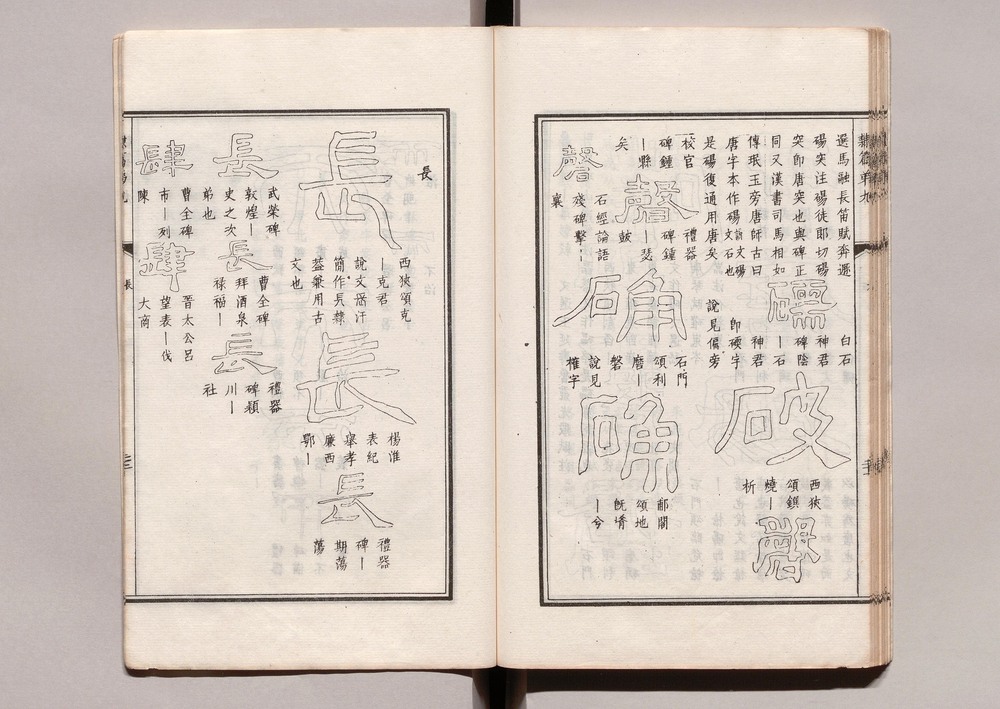 選馬融長笛賦奔遯
碭突注碭徒郎切碭
突卽唐突也與碑正
同又漢書司馬相如
傳珉玉旁唐師古曰
唐字本作碭說文碭文石也
是碭復通用唐矣
礝
白石
神君
碑陰
｜石
神君
卽碝字
說見偏旁
破
西狹
頌鎮
燒｜
析
磬
校官
碑鍾
｜縣
矣
磬
禮器
碑鍾
｜瑟
鼓
磬
石經論語
殘碑擊｜
襄
确
石門
頌利
磨｜
磐
說見
榷字
确
郙閣
頌地
旣塉
｜兮
長
長
西狹頌克
｜克君
說文
汗
簡作長隸
葢兼用古
文也
長
楊淮
表紀
舉孝
廉西
鄂｜
長
禮器
碑｜
期蕩
蕩
長
武榮碑
敦煌｜
史之次
弟也
長
曹全碑
拜酒泉
祿福｜
長
禮器
碑潁
川｜
社
肆
曹全碑
市｜列
陳
肆
晉太公呂
望表｜伐
大商
長